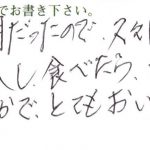 でお書き下さい。
だったので、スタ
入し、食べたら、
かで、とてもおい